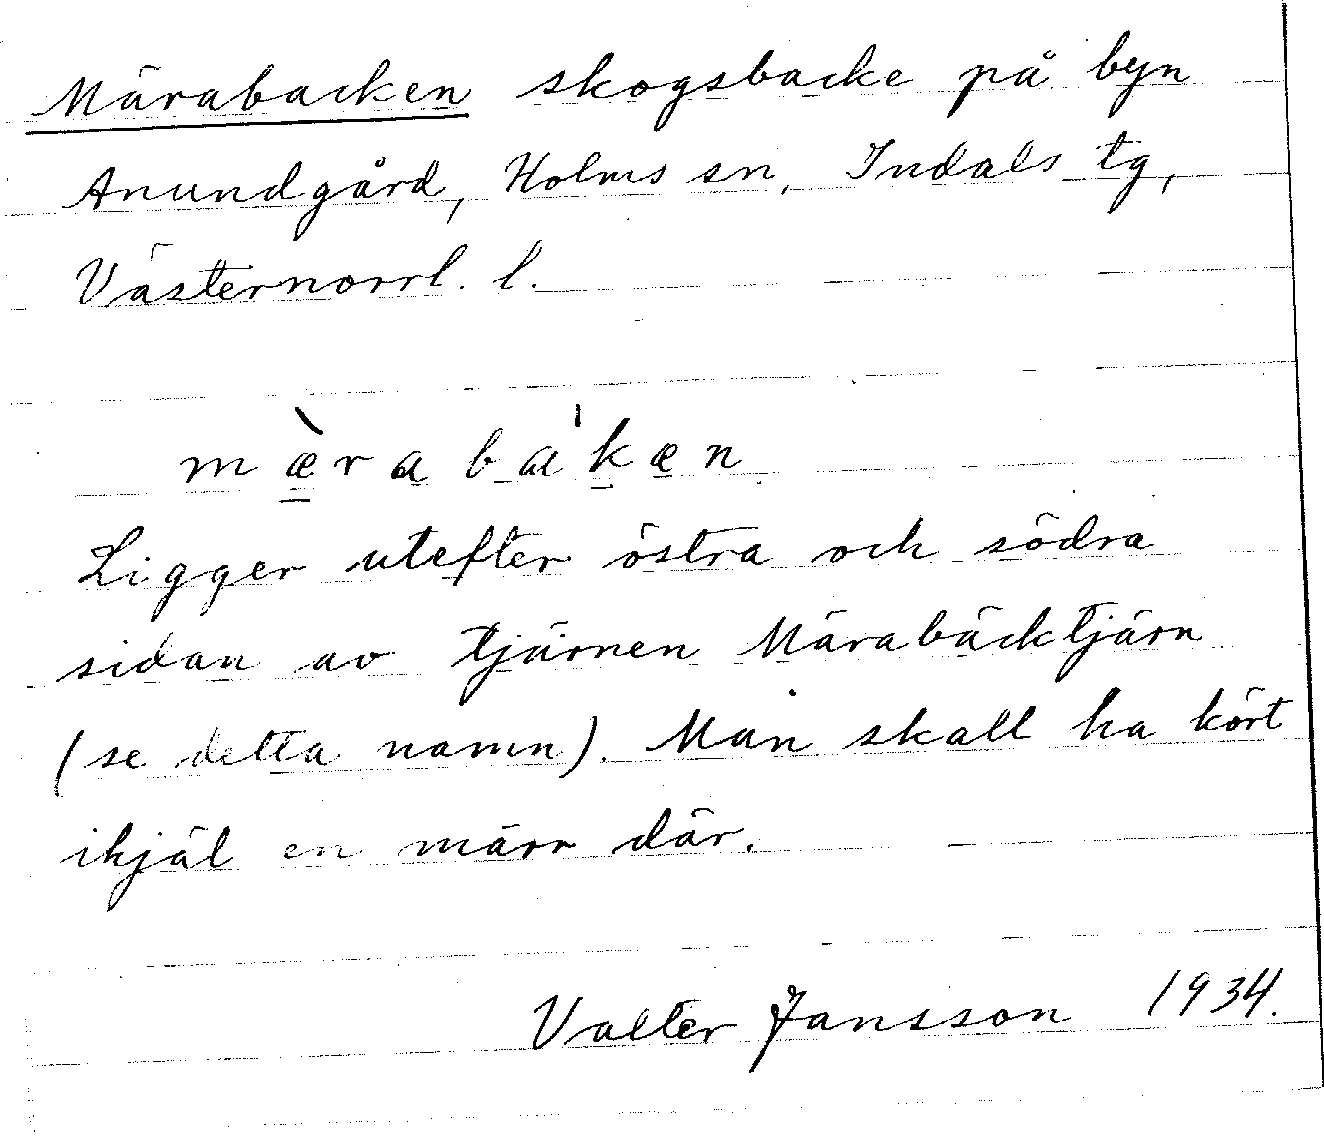 Märabacken skogsbacke på byn
Anundgård, Holms sn, Indals tg,
Västernorrl. l.
mæ̀raba'kæn
Ligger utefter östra och södra
sidan av tjärnen Märabäcktjärn
(se detta namn). Man skall ha kört
ihjäl en märr där.
Valter Jansson 1934.